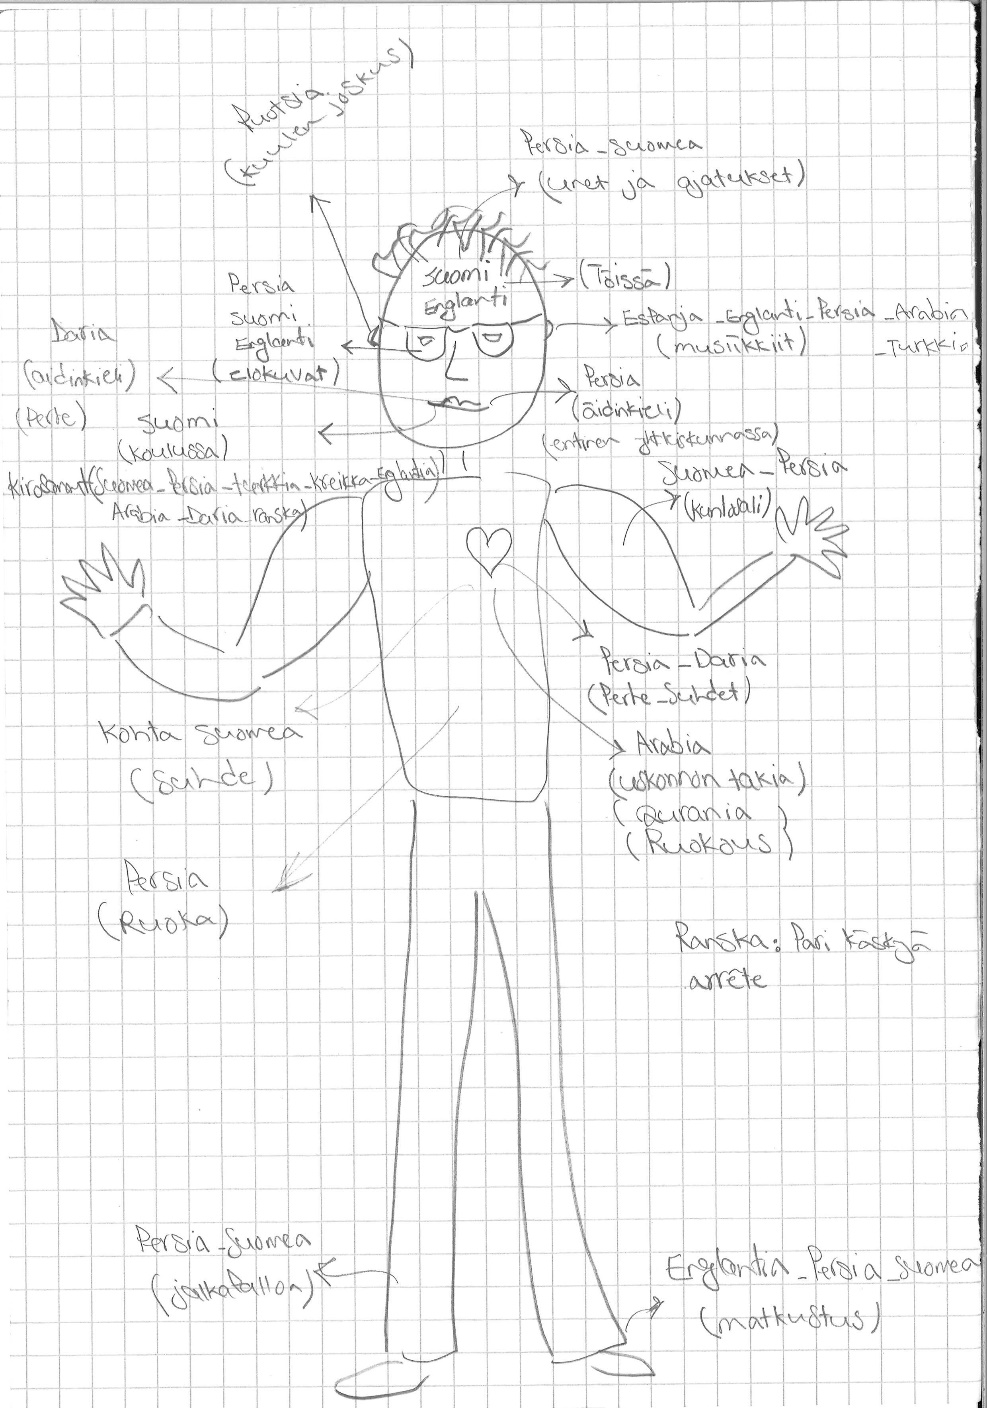 Ruotsia
(kuulen joskus)
Persia_suomea
(unet ja ajatukset)
suomi
Englanti
(Töissä)
Persia
suomi
Englanti
(elokuvat)
Espanja_Englanti_Persia_Arabia
_Turkki
(musiikkiit)
Daria
(äidinkieli)
(Perhe)
suomi
(koulussa)
Persia
(äidinkieli)
(entinen yhteiskunnassa)
kirosanat (suomea_Persia_turkkia_kreikka_Englantia)
Arabia_Daria_ranska)
suomea_Persia
Persia_Daria
(Perhe_Suhdet)
Kohta suomea
(Suhde)
Arabia
(uskonnon takia)
(Qurania)
(Ruokous)
Persia
(Ruoka)
Ranska: Pari käskyä
arrête
Persia_suomea
(jalkapalloa)
Englantia_Persia_suomea
(matkustus)